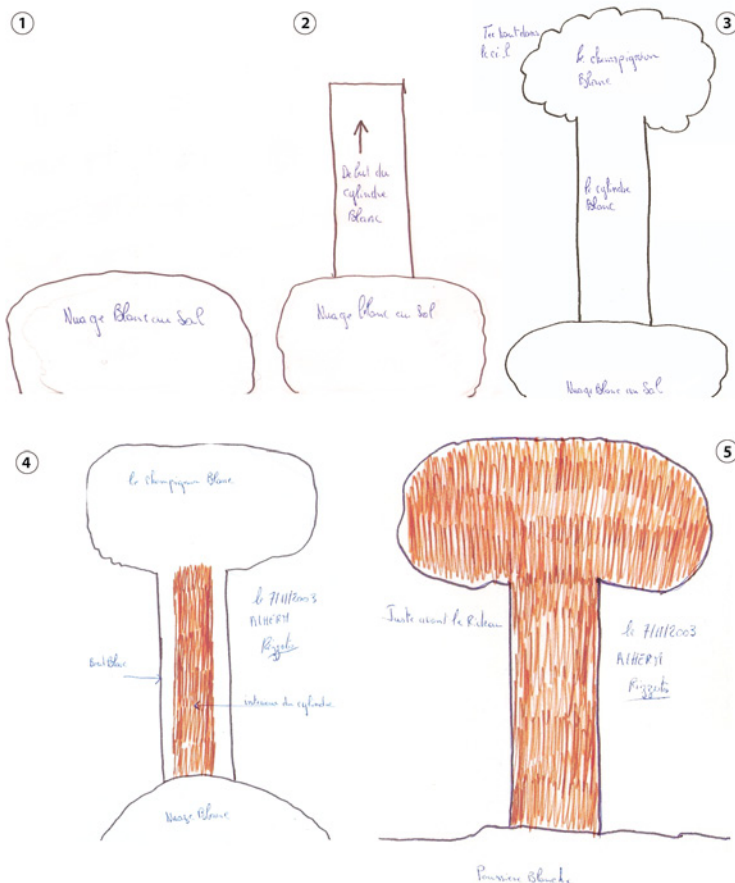 1
Nuage Blanc au Sol
2
Debut du
cylindre
Blanc
Nuage blanc au Sol
3
dans
le ciel
le champignon
Blanc
le cylindre
Blanc
Nuage Blanc au Sol
4
le champignon Blanc
le 7/11/2003
Rizzuto
Blanc
interieur du cylindre
Nuage Blanc
5
Juste avant le Rideau
le 7/11/2003
Rizzuto
Poussiere Blanche